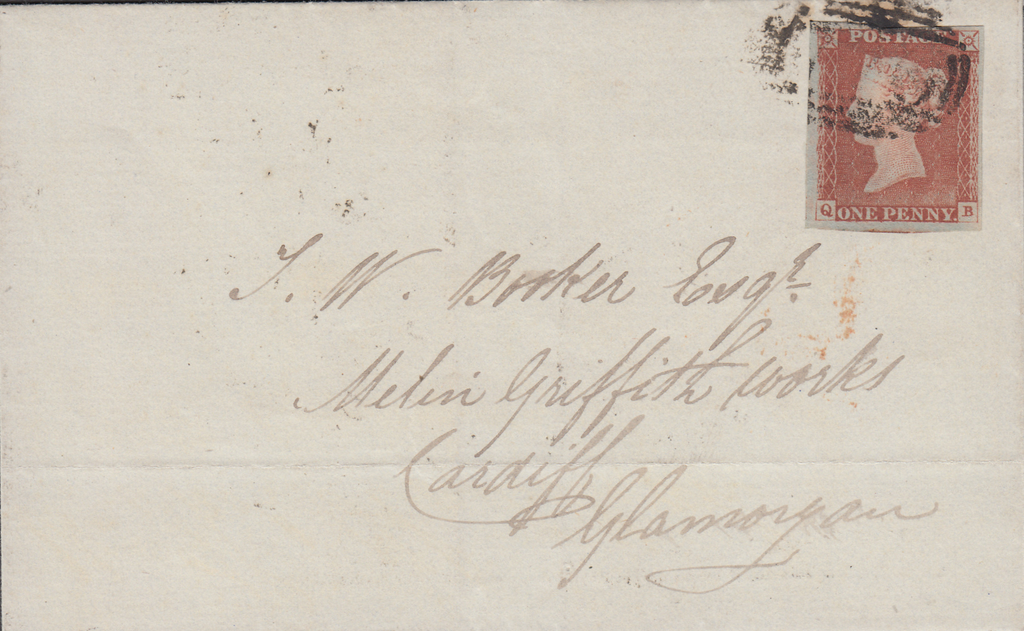 POSTAGE
Q ONE PENNY. B
T. W. Booker Esqr.
Melin Griffith Works
Cardiff
Glamorgan